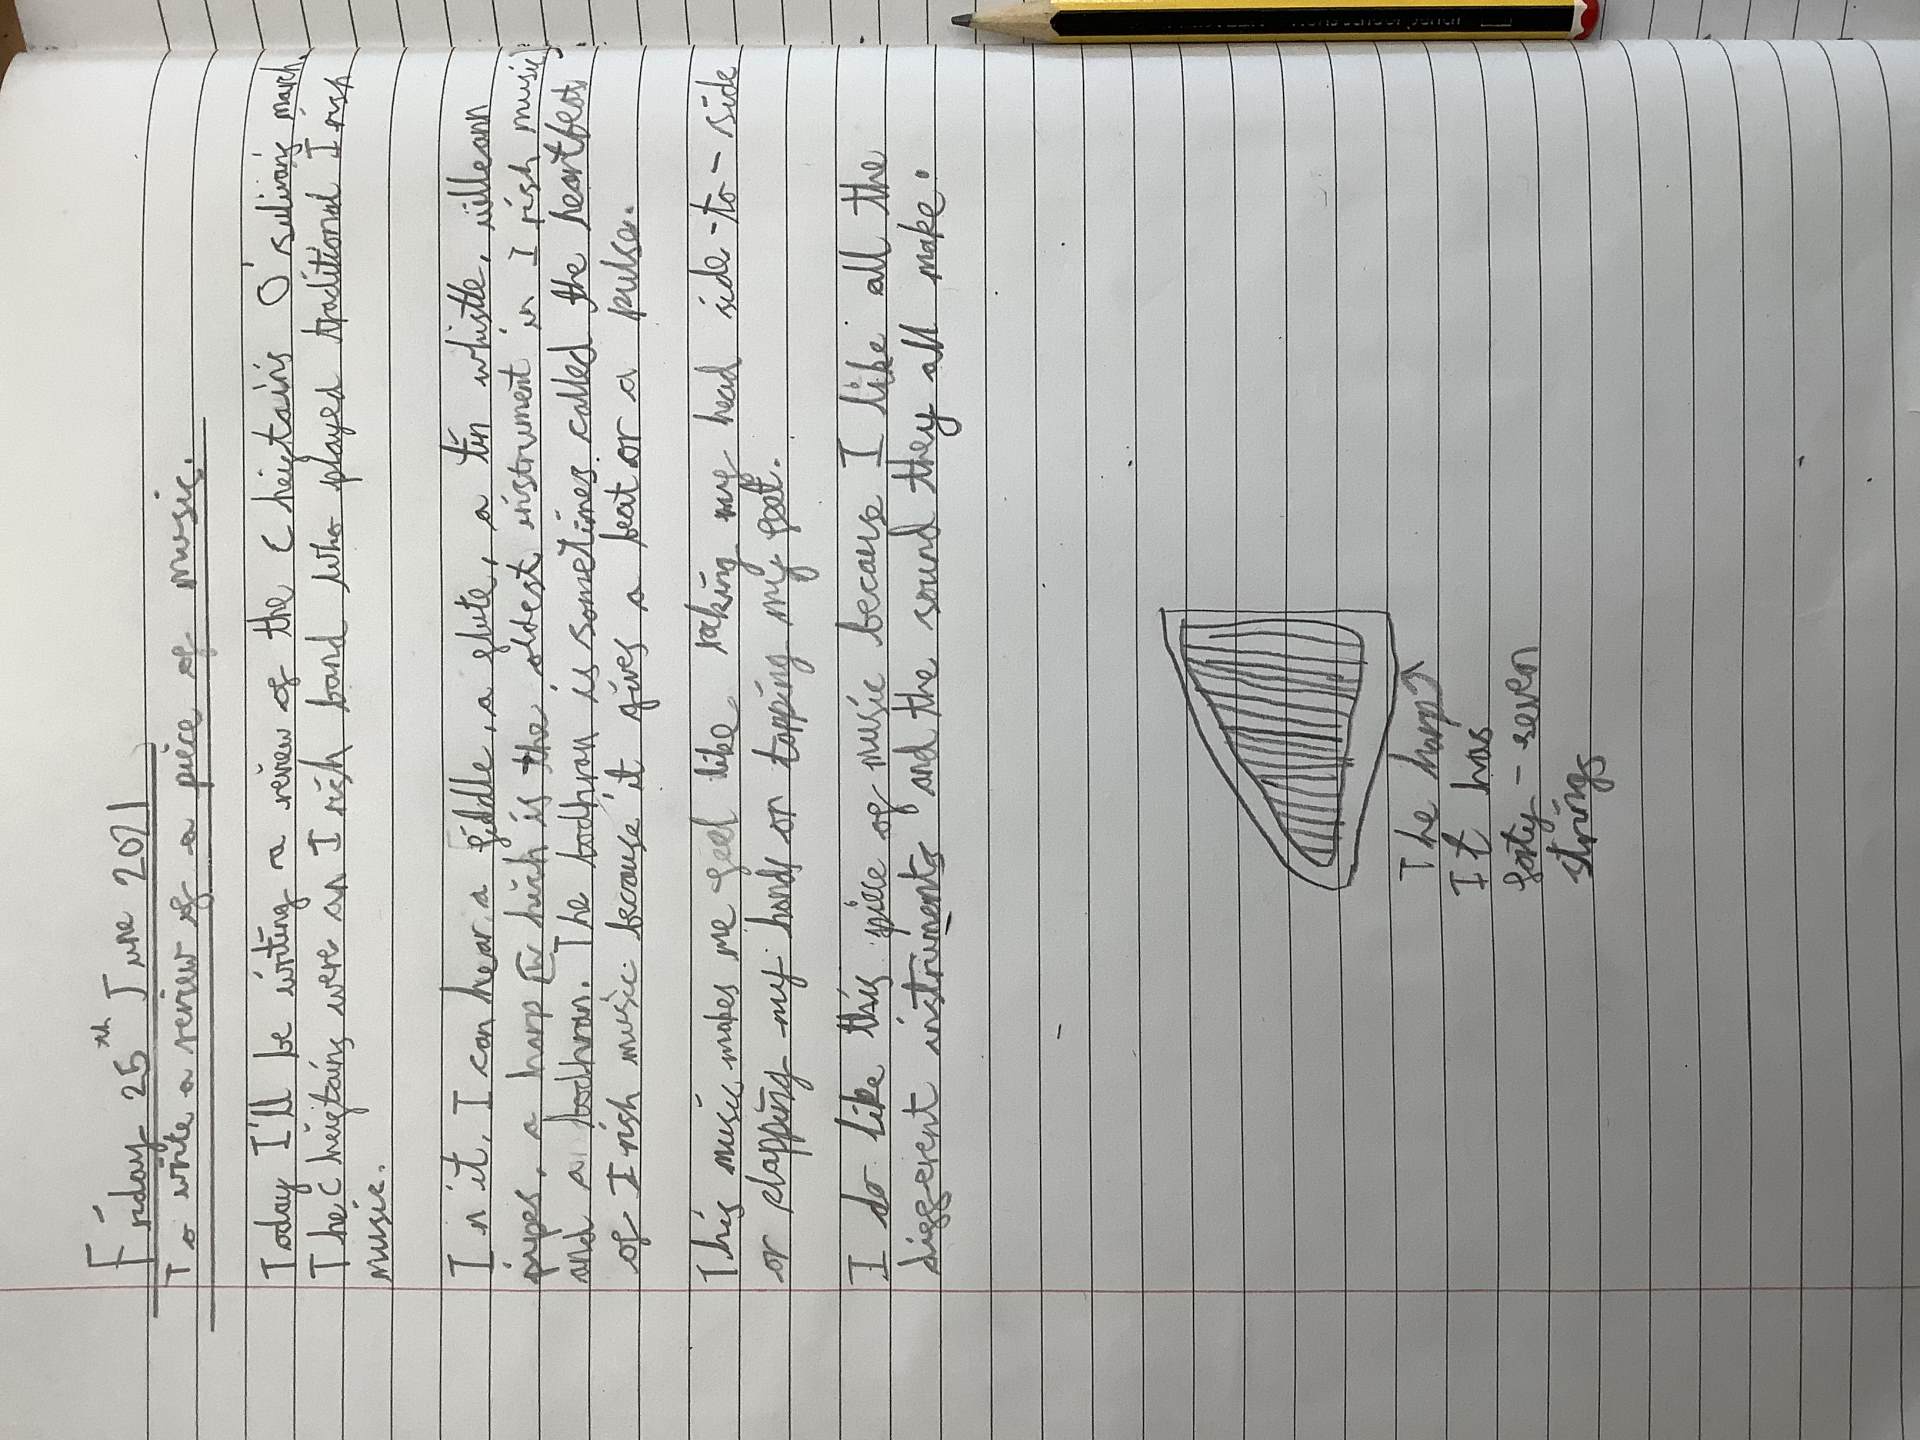 Friday 25th June 2021
To write a review of a piece of music.
Today I'll be writing a review of the Cheiftains O'sulivans march.
The Cheiftains were an Irish band who played traditional Irish
music.
In it, I can hear a fiddle, a flute, a tin whistle, uilleann
pipes, a harp (which is the oldest instrument in Irish music)
and a bodhran. The bodhran is sometimes called the heartbeat
of Irish music because it gives a beat or a pulse.
This music makes me feel like raking my head side-to-side
or clapping my hands or tapping my feet.
I do like this piece of music because I like all the
different instruments and the sound they all make.
The harp
It has
forty-seven
strings